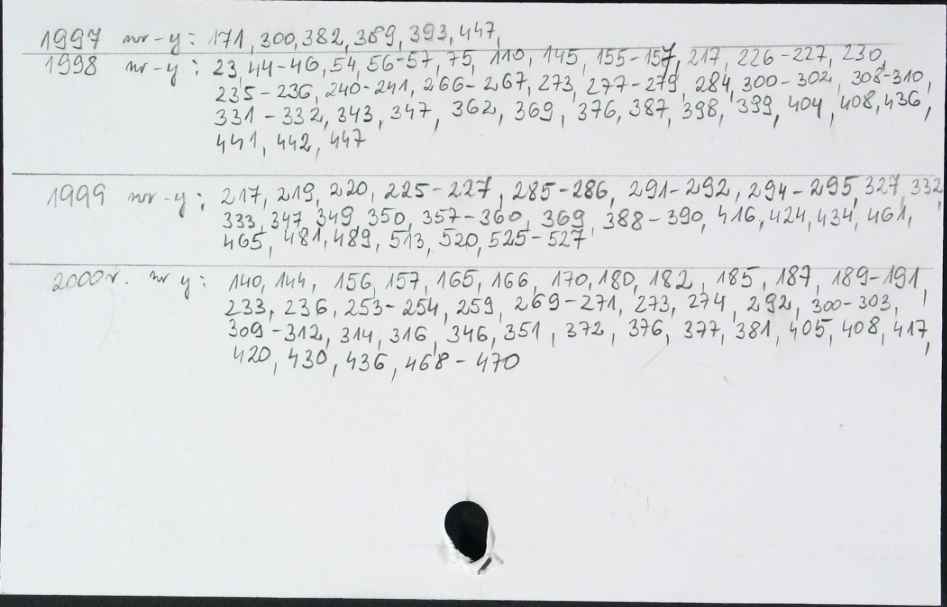 1997 nr-y: 171, 300, 382, 389, 393, 447,
1998 nr-y: 23, 44-46, 54, 56-57, 75, 110, 145, 155-157, 217, 226-227, 230,
235-236, 240-241, 266-267, 273, 277-279, 284, 300-302, 308-310,
331-332, 343, 347, 362, 369, 376, 387, 398, 399, 404, 408, 436,
441, 442, 447
1999 nr-y: 217, 219, 220, 225-227, 285-286, 291-292, 294-295, 327, 332,
333, 347, 349, 350, 357-360, 369, 388-390, 416, 424, 434, 461,
465, 481, 489, 513, 520, 525-527
2000r. nr y: 140, 144, 156, 157, 165, 166, 170, 180, 182, 185, 187, 189-191,
233, 236, 253-254, 259, 269-271, 273, 274, 292, 300-303,
309-312, 314, 316, 346, 351, 372, 376, 377, 381, 405, 408, 417,
420, 430, 436, 468-470